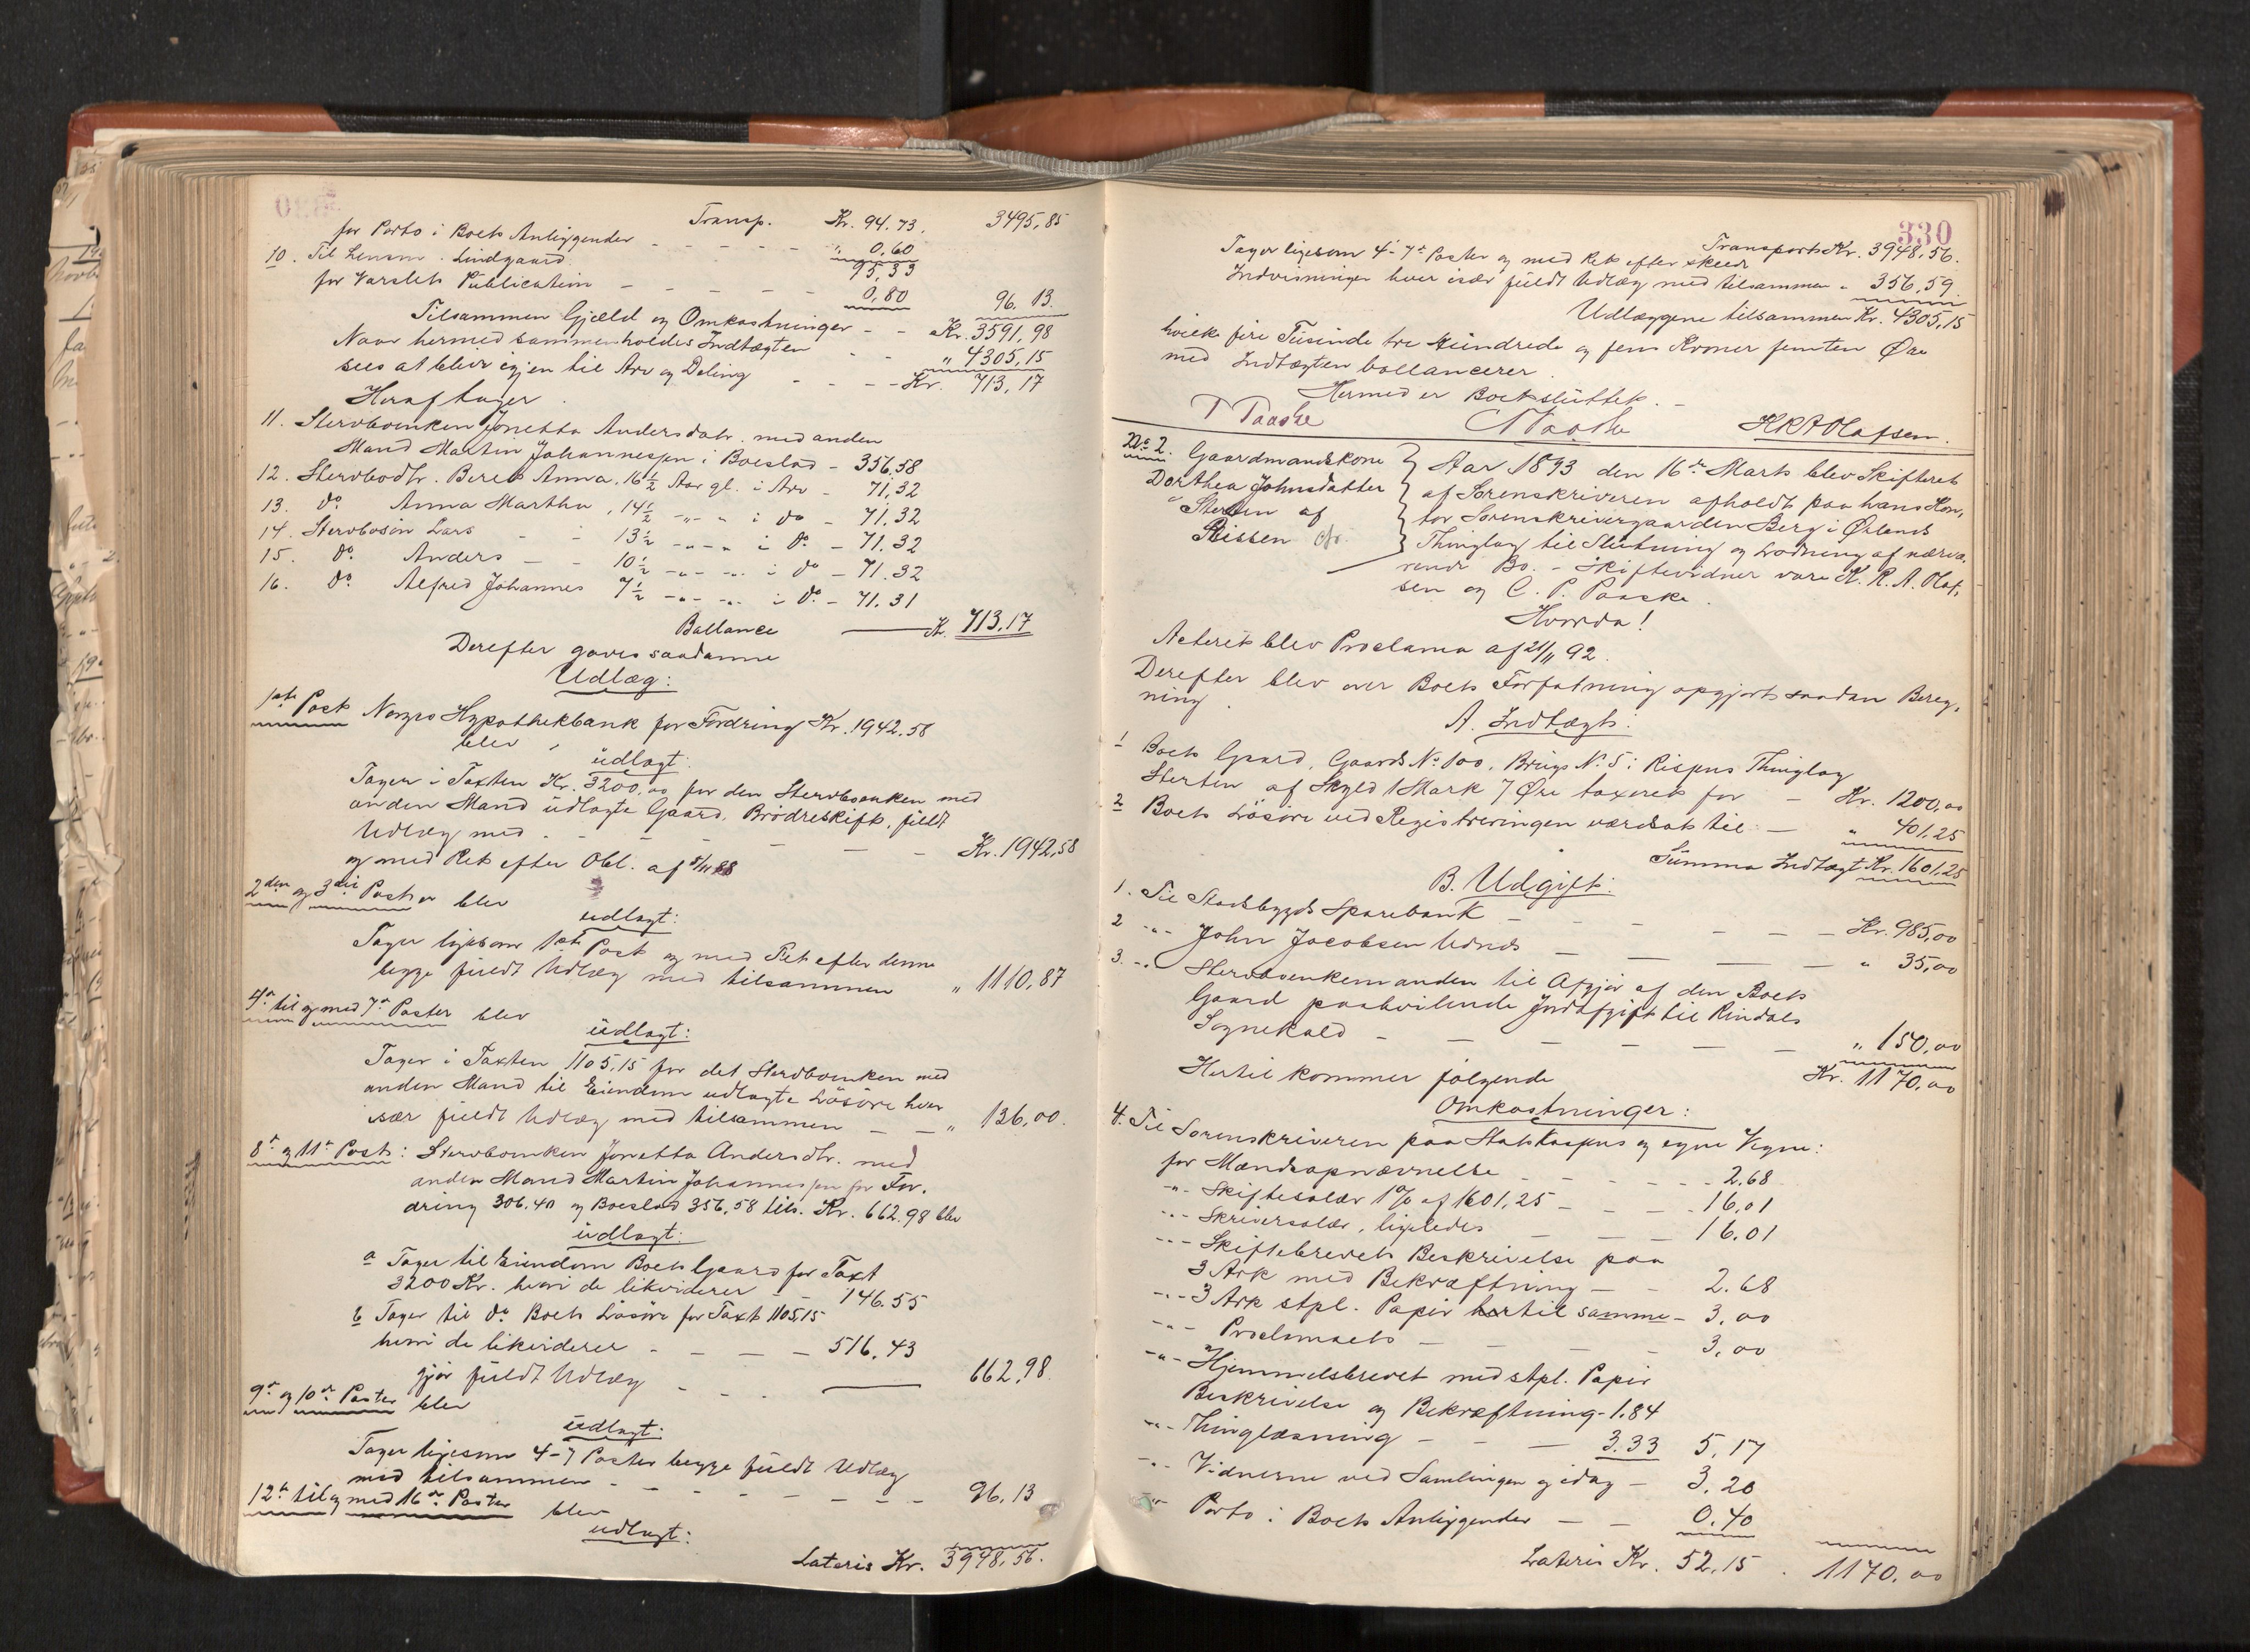 Transp. Kr. 94.73. 3495,85
for Porto i Boets Anliggender - - - - - " 0,60
95,33
10. Til Lensm. Lindgaard
for Varslets Publication - - - - - 0,80 96.13.
Tilsammen Gjæld og Omkostninger - - Kr. 3591,98
Naar hermed sammenholdes Indtægten - - " 4305,15
sees at blive igjen til Arv og Deling - - - - Kr. 713,17
Heraf tager.
11. Stervboenken Jonetta Andersdatr. med anden
Mand Martin Johannessen i Boeslod - 356,58
12. Stervbodtr. Beret Anna, 16½ Aar gl. i Arv - 71,32
13. do Anna Martha, 14½ -"- " i do - 71.32
14. Stervbosøn Lars - - 13½ -"-"- " i do - 71.32
15. do Anders - - 10½ -"- -"- i do - 71.32
16. do Alfred Johannes 7½ -"- -"- i do - 71.31
Ballance — Kr. 713.17
Derefter gaves saadanne
Udlæg:
1ste Post Norges Hypothekbank for Fordring Kr. 1942.58
blev
udlagt:
Tager i Taxten Kr. 3200,00 for den Stervboenken med
anden Mand udlagte Gaard, Brødreskift, fuldt
Udlæg med - - - - - - Kr. 1942,58
og med Ret efter Obl. af 5/11 88
2den og 3die Poster blev
udlagt:
Tager ligesom 1ste Post og med Ret efter denne
begge fuldt Udlæg med tilsammen " 1110,87
4de til og med 7de Poster blev
udlagt:
Tager i Taxten 1105,15 for det Stervboenken med
anden Mand til Eiendom udlagte Løsøre hver
især fuldt Udlæg med tilsammen - - " 136,00.
8de og 11te Post: Stervboenken Jonetta Andersdtr. med
anden Mand Martin Johannessen for For-
dring 306.40 og Boeslod 356,58 tils. Kr. 662.98 blev
udlagt:
a Tager til Eiendom Boets Gaard for Taxt
3200 Kr. hvori de likviderer - - 146.55
b Tager til do Boets Løsøre for Taxt 1105,15
hvori de likviderer - - - - 516,43
gjør fuldt Udlæg - - - — 662,98.
9de og 10de Poster blev
udlagt:
Tager ligesom 4-7 Poster begge fuldt Udlæg
med tilsammen - - - - - - - 96,13
12te til og med 16de Poster blev
udlagt:
Lateris Kr. 3948,56.
330
Transport Kr. 3948,56.
Tager ligesom 4-7de Poster og med Ret efter skeedt
Indvisninger hver især fuldt Udlæg med tilsammen " 356,59.
Udlæggene tilsammen Kr. 4305,15
hvilke fire Tusinde tre Hundrede og fem Kroner femten Øre
med Indtægten ballancerer.
Hermed er Boet sluttet. -
Paaske KRAOlafsen.
No 2. Gaardmandskone
Dorthea Johnsdatter
Sterten af
Rissen
Aar 1893 den 16de Marts blev Skifteret
af Sorenskriveren afholdt paa hans Kon-
tor Sorenskrivergaarden Berg i Ørlands
Thinglag til Slutning og Lodning af nærvæ-
rende Bo. - Skiftevidner vare K. R. A. Olaf-
sen og C. P. Paaske.
Hvorda!
Acteret blev Proclama af 21/11 92.
Derefter blev over Boets Forfatning opgjort saadan Bereg-
ning.
A. Indtægt:
1 Boets Gaard, Gaards No 100, Brugs No 5 i Rissens Thinglag
Sterten af Skyld 1 Mark 7 Øre taxeret for - Kr. 1200,00
2 Boets Løsøre ved Registreringen værdsat til - " 401.25
Summa Indtægt Kr. 1601,25
B. Udgift:
1. Til Stadsbygds Sparebank - - - - - - Kr. 985,00
2 -"- John Jacobsen - - - - " 35,00
3. -"- Stervboenkemanden til Afgjør af den Boets
Gaard paahvilende Jordafgift til Rindals
Sognekald - - - - - - " 150,00
Hertil kommer følgende Kr. 1170,00
Omkostninger:
4. Til Sorenskriveren paa Statskassens og egne Vegne:
for Mændsopnævnelse - - - - - - 2.68
-"- Skiftesalær 1% af 1601,25 - - - - 16,01
-"- Skriversalær, ligeledes - - - 16.01
-"- Skiftebrevets Beskrivelse paa
3 Ark med Bekræftning - - 2.68
-"- 3 Ark stpl. Papir hertil samme - 3,00
-"- Proclamaets - - - - 3,00
-"- Hjemmelsbrevet med stpl. Papir
Beskrivelse og Bekræftning - 1.84
-"- Thinglæsning - - - 3.33 5,17
-"- Vidnerne ved Samlingen og idag - 3.20
-"- Porto i Boets Anliggender - - 0.40
Lateris Kr. 52.15. 1170.00